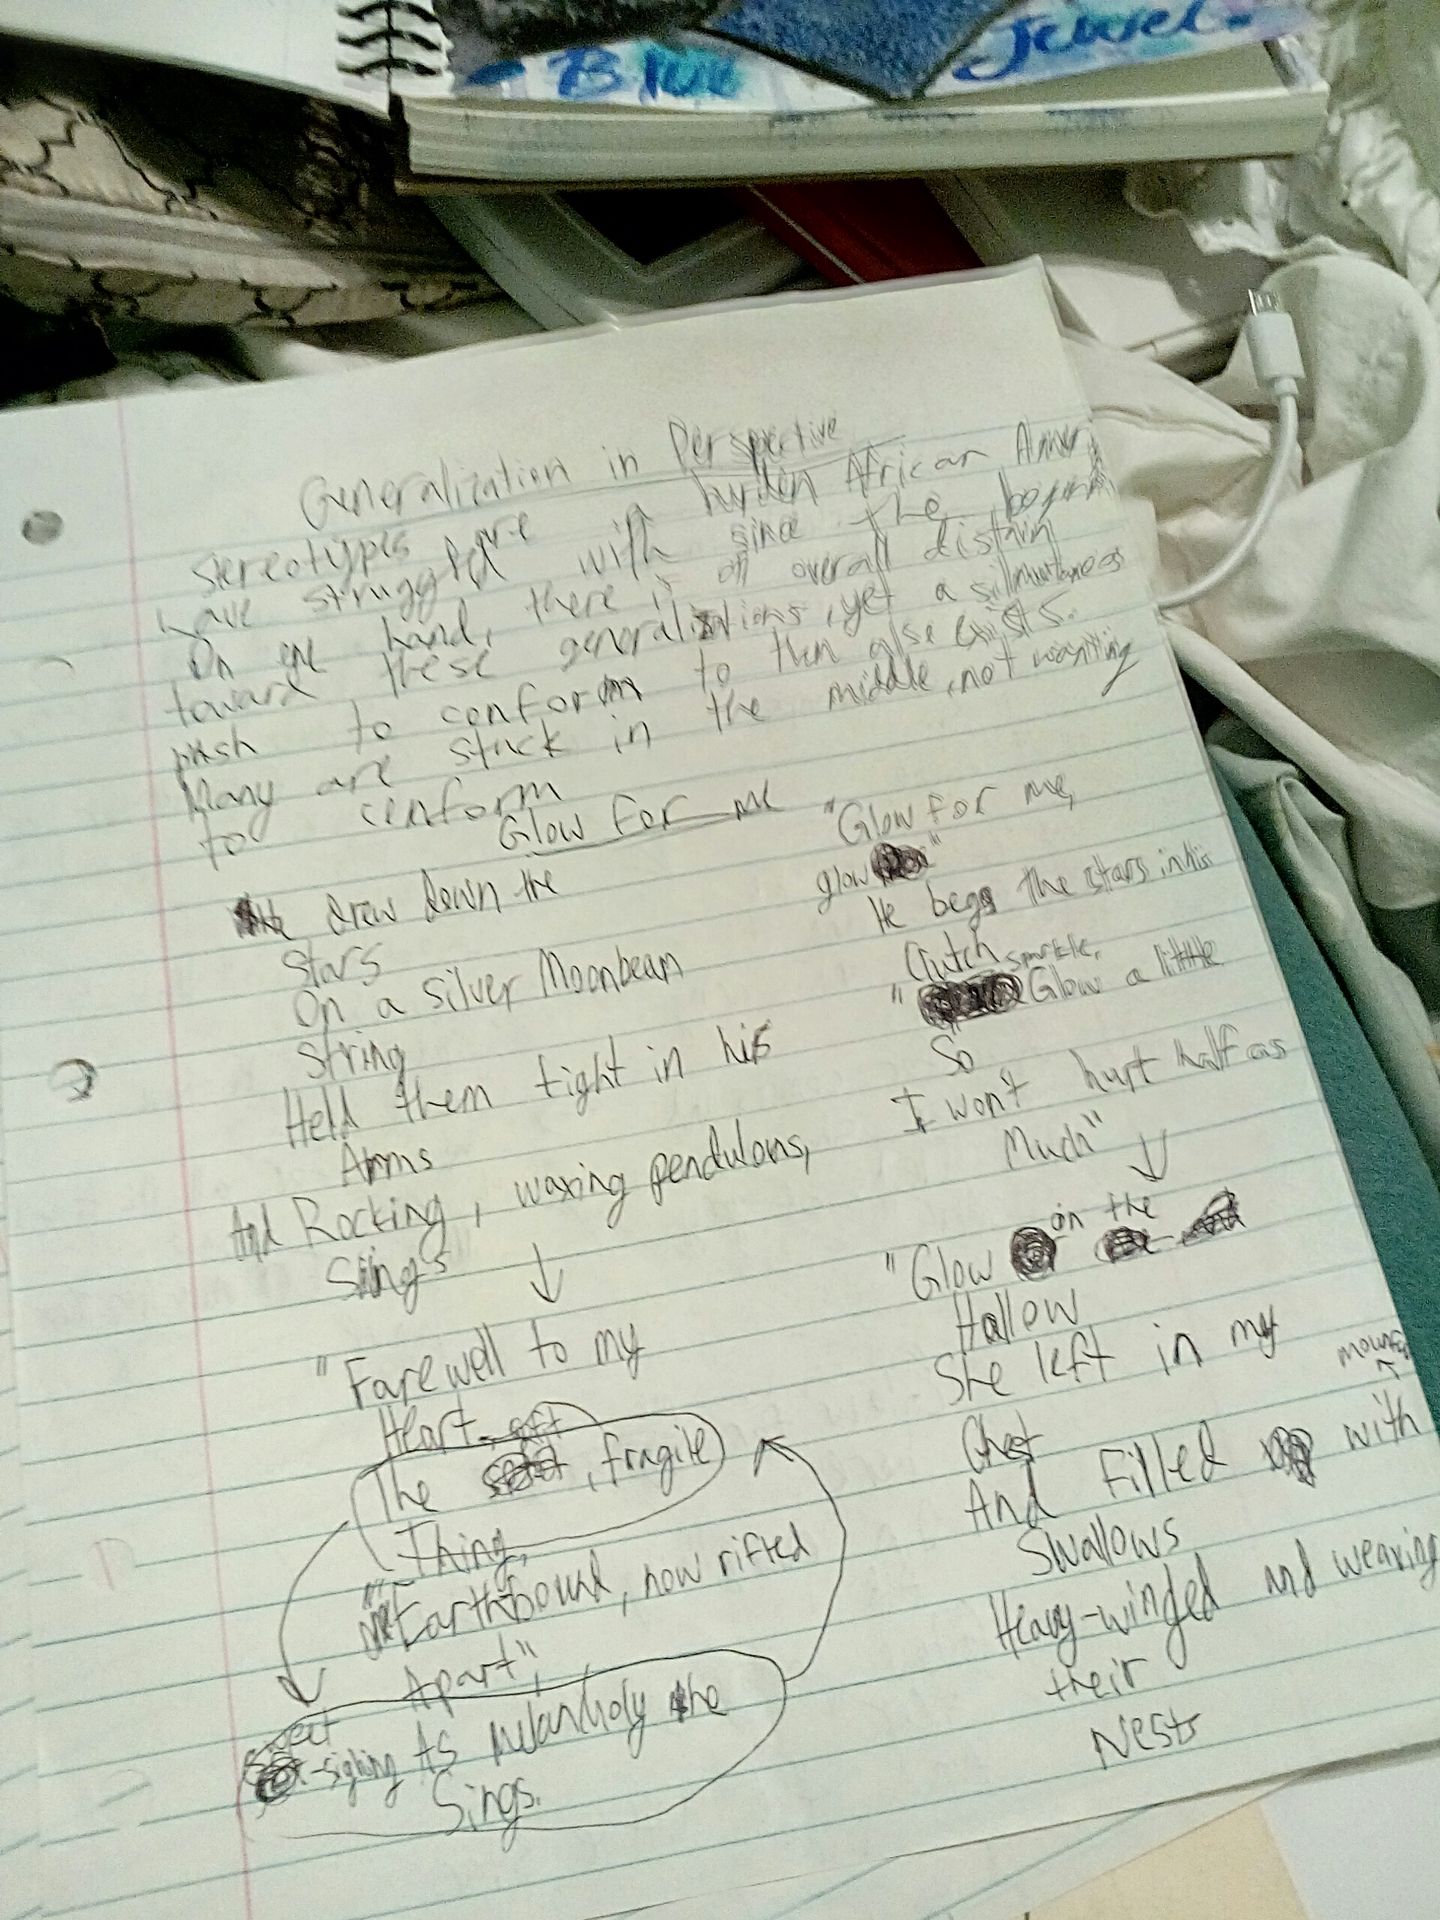 Blue Jewel.
Generalization in Perspective
stereotypes are burden African Amer
have struggled with since the
On one hand, there is an overall
toward these generalizations, yet a
push to conform to them also exists.
Many are stuck in the middle, not wanting
to conform
Glow For me
He drew down the
Stars
On a silver Moonbeam
String
Held them tight in his
Arms
And Rocking, waxing pendulous,
Sings
"Farewell to my
Heart,
The , fragile
Thing,
Earthbound, now rifted
Apart",
Sweet
-sighing As melancholy he
Sings.
"Glow for me,
glow "
He begs the stars in his
Clutch
sparkle,
" Glow a little
So
I won't hurt half as
Much"
"Glow in the
Hallow
She left in my
Chest
And Filled with
Swallows
Heavy-winged and weaving
their
Nests